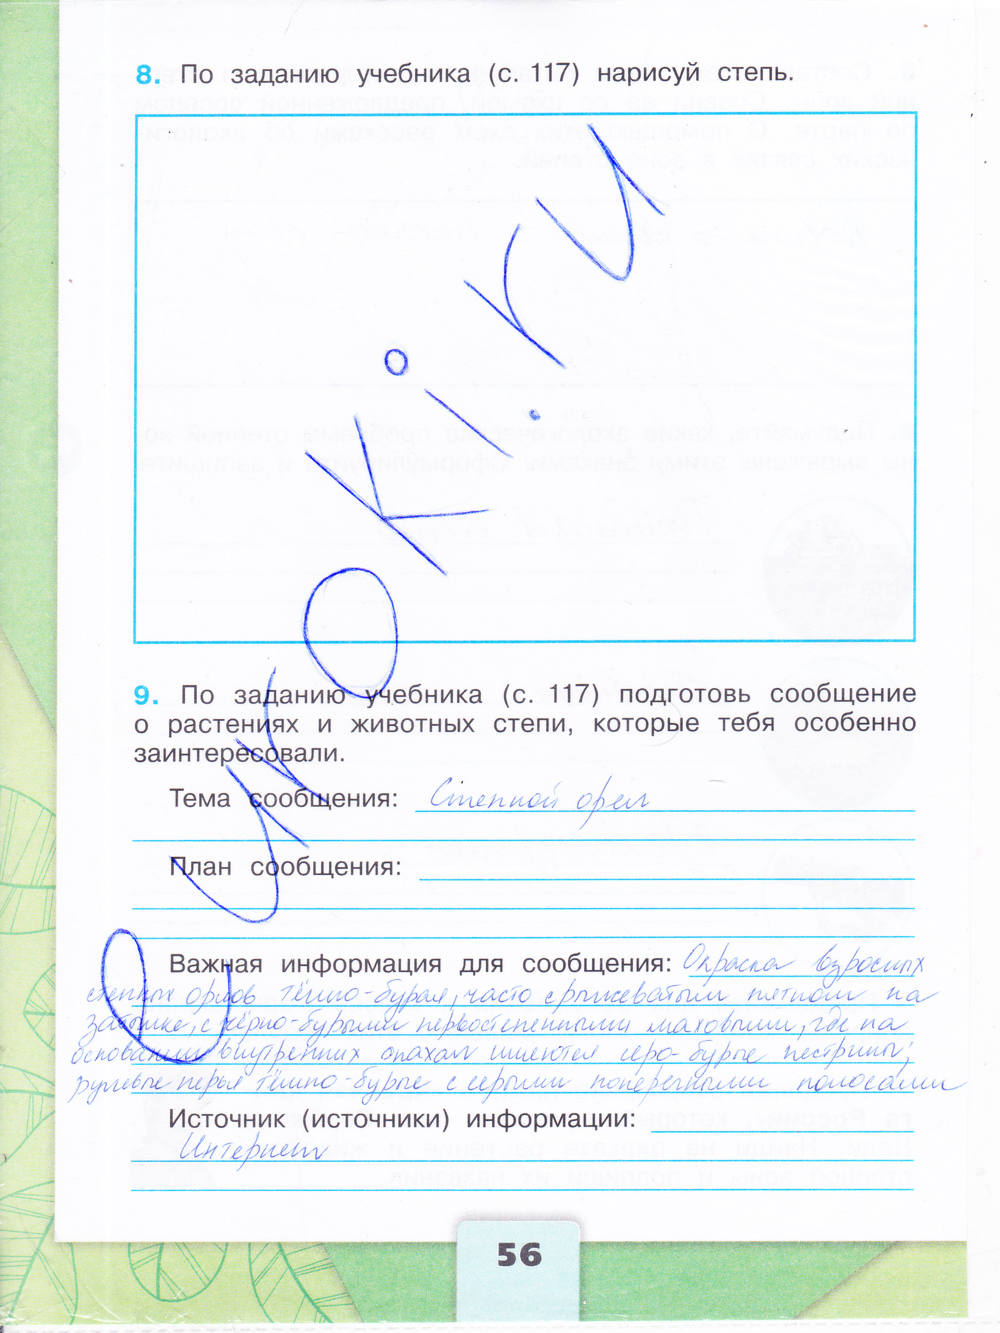 8. По заданию учебника (с. 117) нарисуй степь.
euroki.ru
9. По заданию учебника (с. 117) подготовь сообщение
о растениях и животных степи, которые тебя особенно
заинтересовали.
Тема сообщения: Степной орел
План сообщения:
Важная информация для сообщения: Окраска взрослых
степных орлов тёмно-бурая, часто с рыжеватым пятном на
затылке, с чёрно-бурыми первостепенными маховыми, где на
основании внутренних опахал имеются серо-бурые пестрины;
рулевые перья тёмно-бурые с серыми поперечными полосами
Источник (источники) информации:
Интернет
56